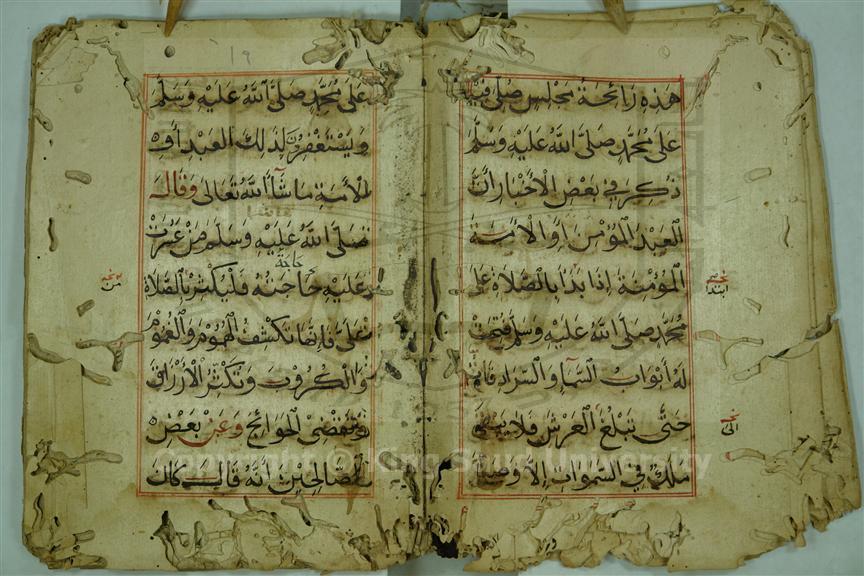 هَذِهِ رَائِحَةُ مَجْلِسٍ صُلِّيَ فِيهِ
عَلَى مُحَمَّدٍ صَلَّى اللهُ عَلَيْهِ وَسَلَّمَ
ذُكِرَ فِي بَعْضِ الْأَخْبَارِ أَنَّ
الْعَبْدَ الْمُؤْمِنَ أَوِ الْأَمَةَ
الْمُؤْمِنَةَ إِذَا بَدَأَ بِالصَّلَاةِ عَلَى
مُحَمَّدٍ صَلَّى اللهُ عَلَيْهِ وَسَلَّمَ فُتِحَتْ
لَهُ أَبْوَابُ السَّمَاءِ وَالسُّرَادِقَاتُ
حَتَّى تَبْلُغَ الْعَرْشَ فَلَا يَبْقَى
مَلَكٌ فِي السَّمَوَاتِ إِلَّا وَصَلَّى
نسخة
ابتدا
نسخة
الى
١٩
عَلَى مُحَمَّدٍ صَلَّى اللهُ عَلَيْهِ وَسَلَّمَ
وَيَسْتَغْفِرُونَ لِذَلِكَ الْعَبْدِ أَوِ
الْأَمَةِ مَا شَاءَ اللهُ تَعَالَى وَقَالَ
صَلَّى اللهُ عَلَيْهِ وَسَلَّمَ مَنْ عَسُرَتْ
حاجة
عَلَيْهِ حَاجَتُهُ فَلْيُكْثِرْ بِالصَّلَاةِ
عَلَيَّ فَإِنَّهَا تَكْشِفُ الْهُمُومَ وَالْغُمُومَ
وَالْكُرُوبَ وَتُكْثِرُ الْأَرْزَاقَ
وَتَقْضِي الْحَوَائِجَ وَعَنْ بَعْضِ
الصَّالِحِينَ أَنَّهُ قَالَ كَانَ
نسخة
من
Copyright © King Saud University